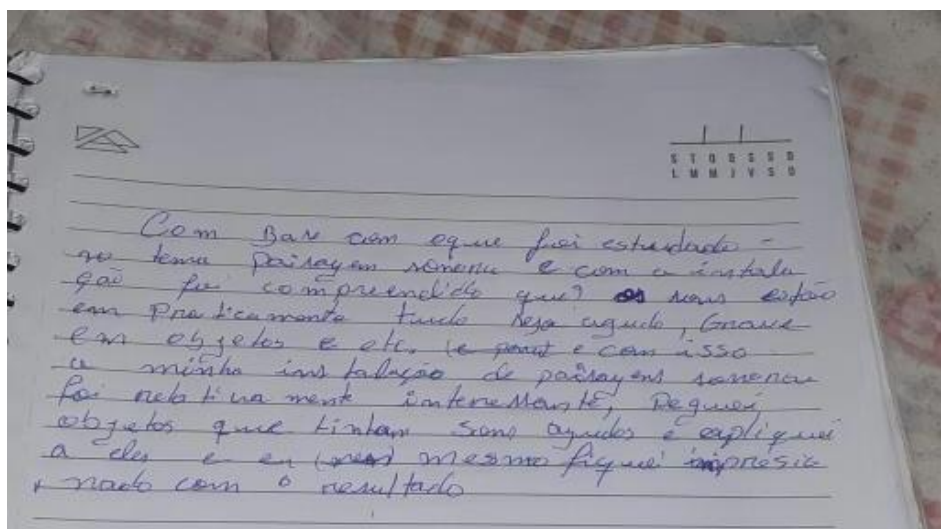 S T Q Q S S D
L M M J V S D
Com Bas com oque foi estudado -
no tema paisagem sonora e com a instala
ção foi compreendido que? os sons estão
em praticamente tudo seja agudo, Grave
em objetos e etc, e com isso
a minha instalação de paisagens sonoras
foi relativamente interessante, Peguei
objetos que tinham sons agudos e expliquei
a eles e eu mesmo fiquei impresio
nado com o resultado